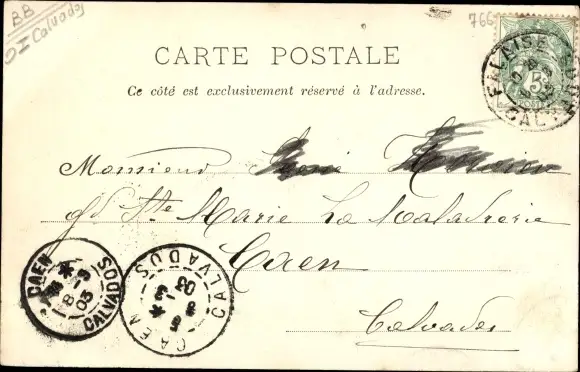 BB
Calvados
766
CARTE POSTALE
Ce côté est exclusivement réservé à l'adresse.
FALAISE
CALVADOS
5
Monsieur
Ste Marie La Maladrerie
Caen
Calvados
CAEN
8 -3
03
CALVADOS
CAEN
8 -3
03
CALVADOS